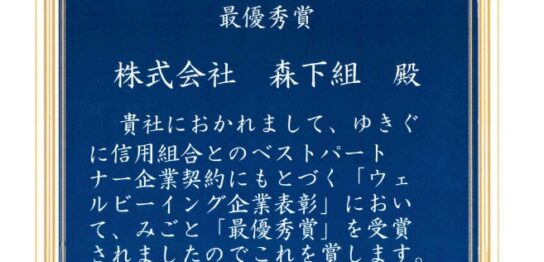 最優秀賞
株式会社　森下組　殿
貴社におかれまして、ゆきぐ
に信用組合とのベストパート
ナー企業契約にもとづく「ウェ
ルビーイング企業表彰」におい
て、みごと「最優秀賞」を受賞
されましたのでこれを賞します。